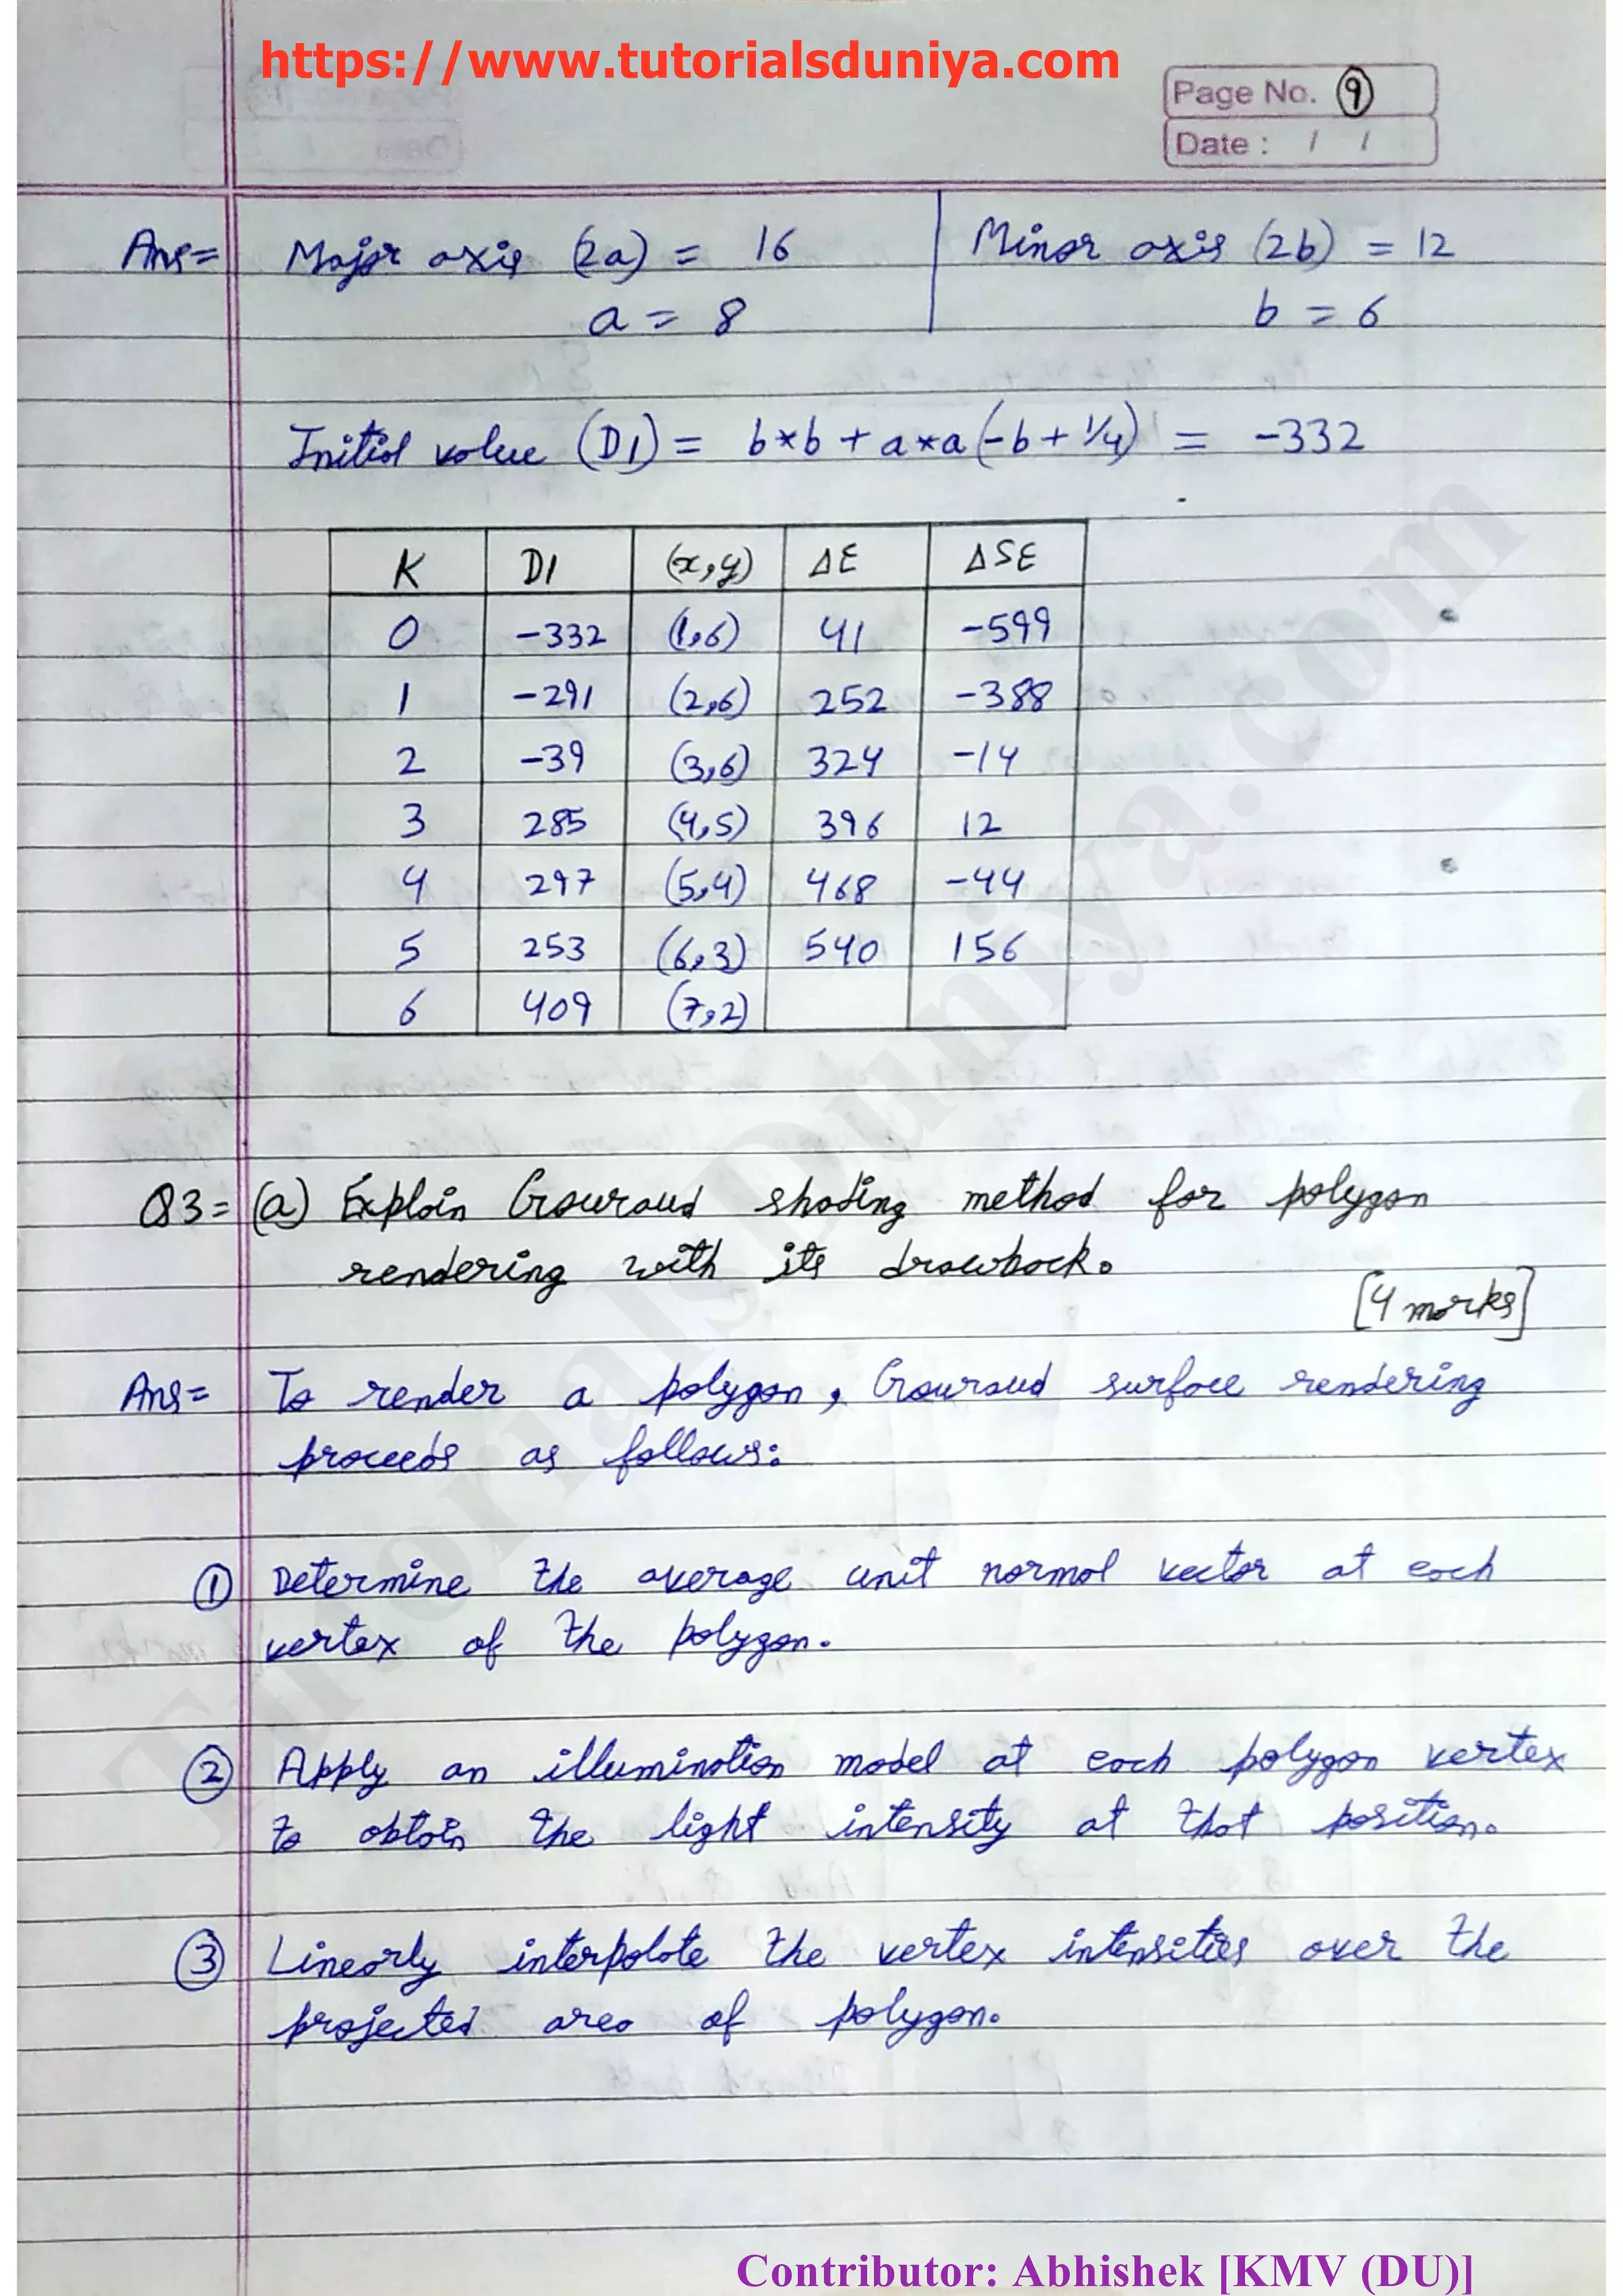 https://www.tutorialsduniya.com
Page No. 9
Date : / /
Ans= Major axis (2a) = 16 Minor axis (2b) = 12
a = 8 b = 6
Initial value (D1) = b*b + a*a(-b + 1/4) = -332
K D1 (x,y) ΔE ΔSE
0 -332 (1,6) 41 -599
1 -291 (2,6) 252 -388
2 -39 (3,6) 324 -14
3 285 (4,5) 396 12
4 297 (5,4) 468 -44
5 253 (6,3) 540 156
6 409 (7,2)
Q3= (a) Explain Gouraud shading method for polygon
rendering with its drawback.
[4 marks]
Ans= To render a polygon, Gouraud surface rendering
proceeds as follows:
① Determine the average unit normal vector at each
vertex of the polygon.
② Apply an illumination model at each polygon vertex
to obtain the light intensity at that position.
③ Linearly interpolate the vertex intensities over the
projected area of polygon.
TutorialsDuniya.com
Contributor: Abhishek [KMV (DU)]